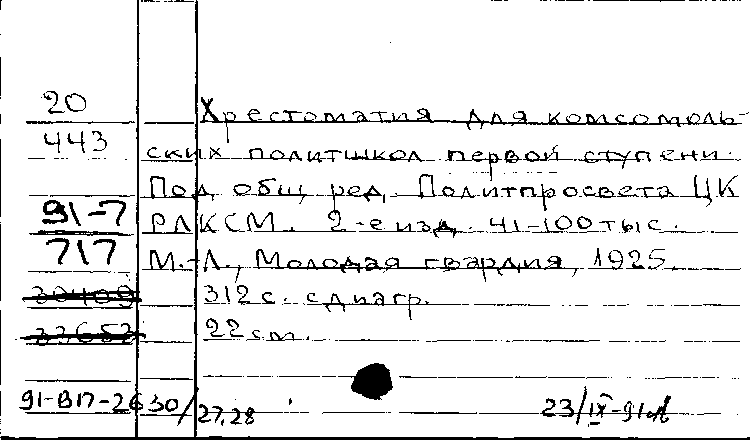 20
443
Хрестоматия для комсомоль-
ских политшкол первой ступени.
Под общ. ред. Политпросвета ЦК
91-7
717
РЛКСМ. 2-е изд. 41-100 тыс.
М.-Л., Молодая гвардия, 1925.
30409
312 с. с диагр.
33653
22 см.
91-В17-2630/27,28
23/IX-91